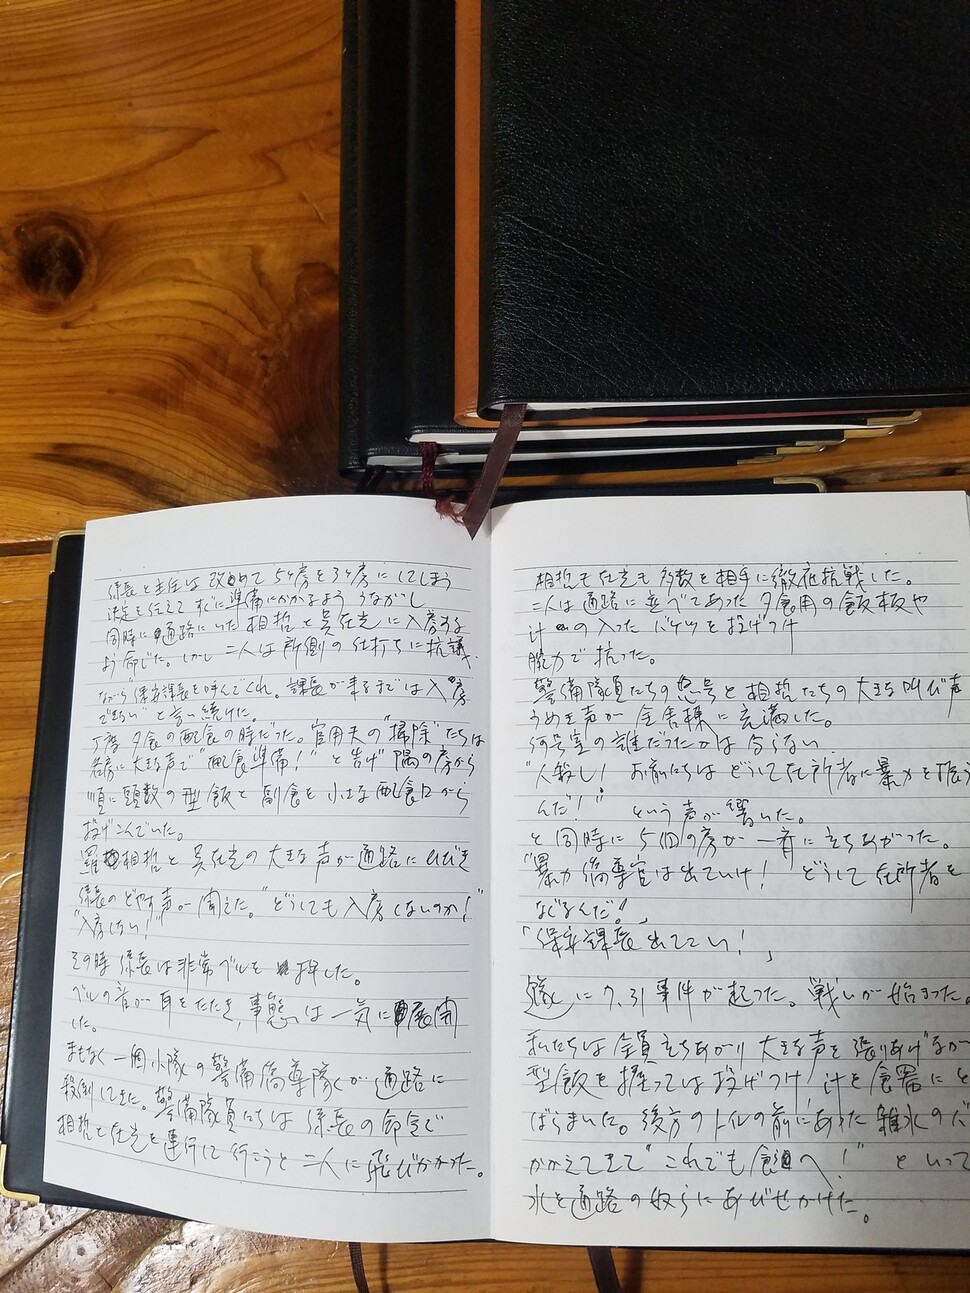 係長と主任は改めて5ケ房を3ケ房にしてしまう
決定を伝えてすぐに準備にかかるよう うながし
同時に通路にいた相哲と呉在光に入房する
よう命じた。しかし二人は所側の仕打ちに抗議
ながら"保安課長を呼んでくれ。課長が来るまでは入房
できない"と言い続けた。
丁度夕食の配食の時だった。官用夫の"掃除"たちは
各房に大きな声で"配食準備!"と告げ 隅の房から
順に頭数の型飯と副食を小さな配食口から
投げこんでいた。
羅相哲と呉在光の大きな声が通路にひびき
係長のどやす声が聞えた。"どうしても入房しないのか!"
"入房しない!"
その時 係長は非常ベルを押した。
ベルの音が耳をたたき、事態は一気に展開
した。
まもなく一個小隊の警備隊が通路に
殺倒してきた。警備隊員たちは係長の命令で
相哲と在光を連行して行こうと二人に飛びかかった。
相哲も在光も多数を相手に徹底抗戦した。
二人は通路に並べてあった夕食用の飯板や
汁の入ったバケツを投げつけ
腕力で抗った。
警備隊員たちの怒号と相哲たちの大きな叫び声
うめき声が全舎棟に充満した。
何号室の誰だったかは分らない。
"人殺し! お前たちはどうして在所者に暴力を振う
んだ!" という声が響いた。
と同時に5個の房が一斉に立ちあがった。
"暴力 官は出ていけ! どうして在所者を
なぐるんだ!"
「保安課長出てこい!」
遂に7.31事件が起った。戦いが始まった。
私たちは全員立ちあがり大きな声を張りあげなが
型飯を握っては投げつけ、汁を食器に
ばらまいた。後方のトイレの前にあった雑水の
かかえてきて"これでも食らへ!" といって
水を通路の奴らにあびせかけた。